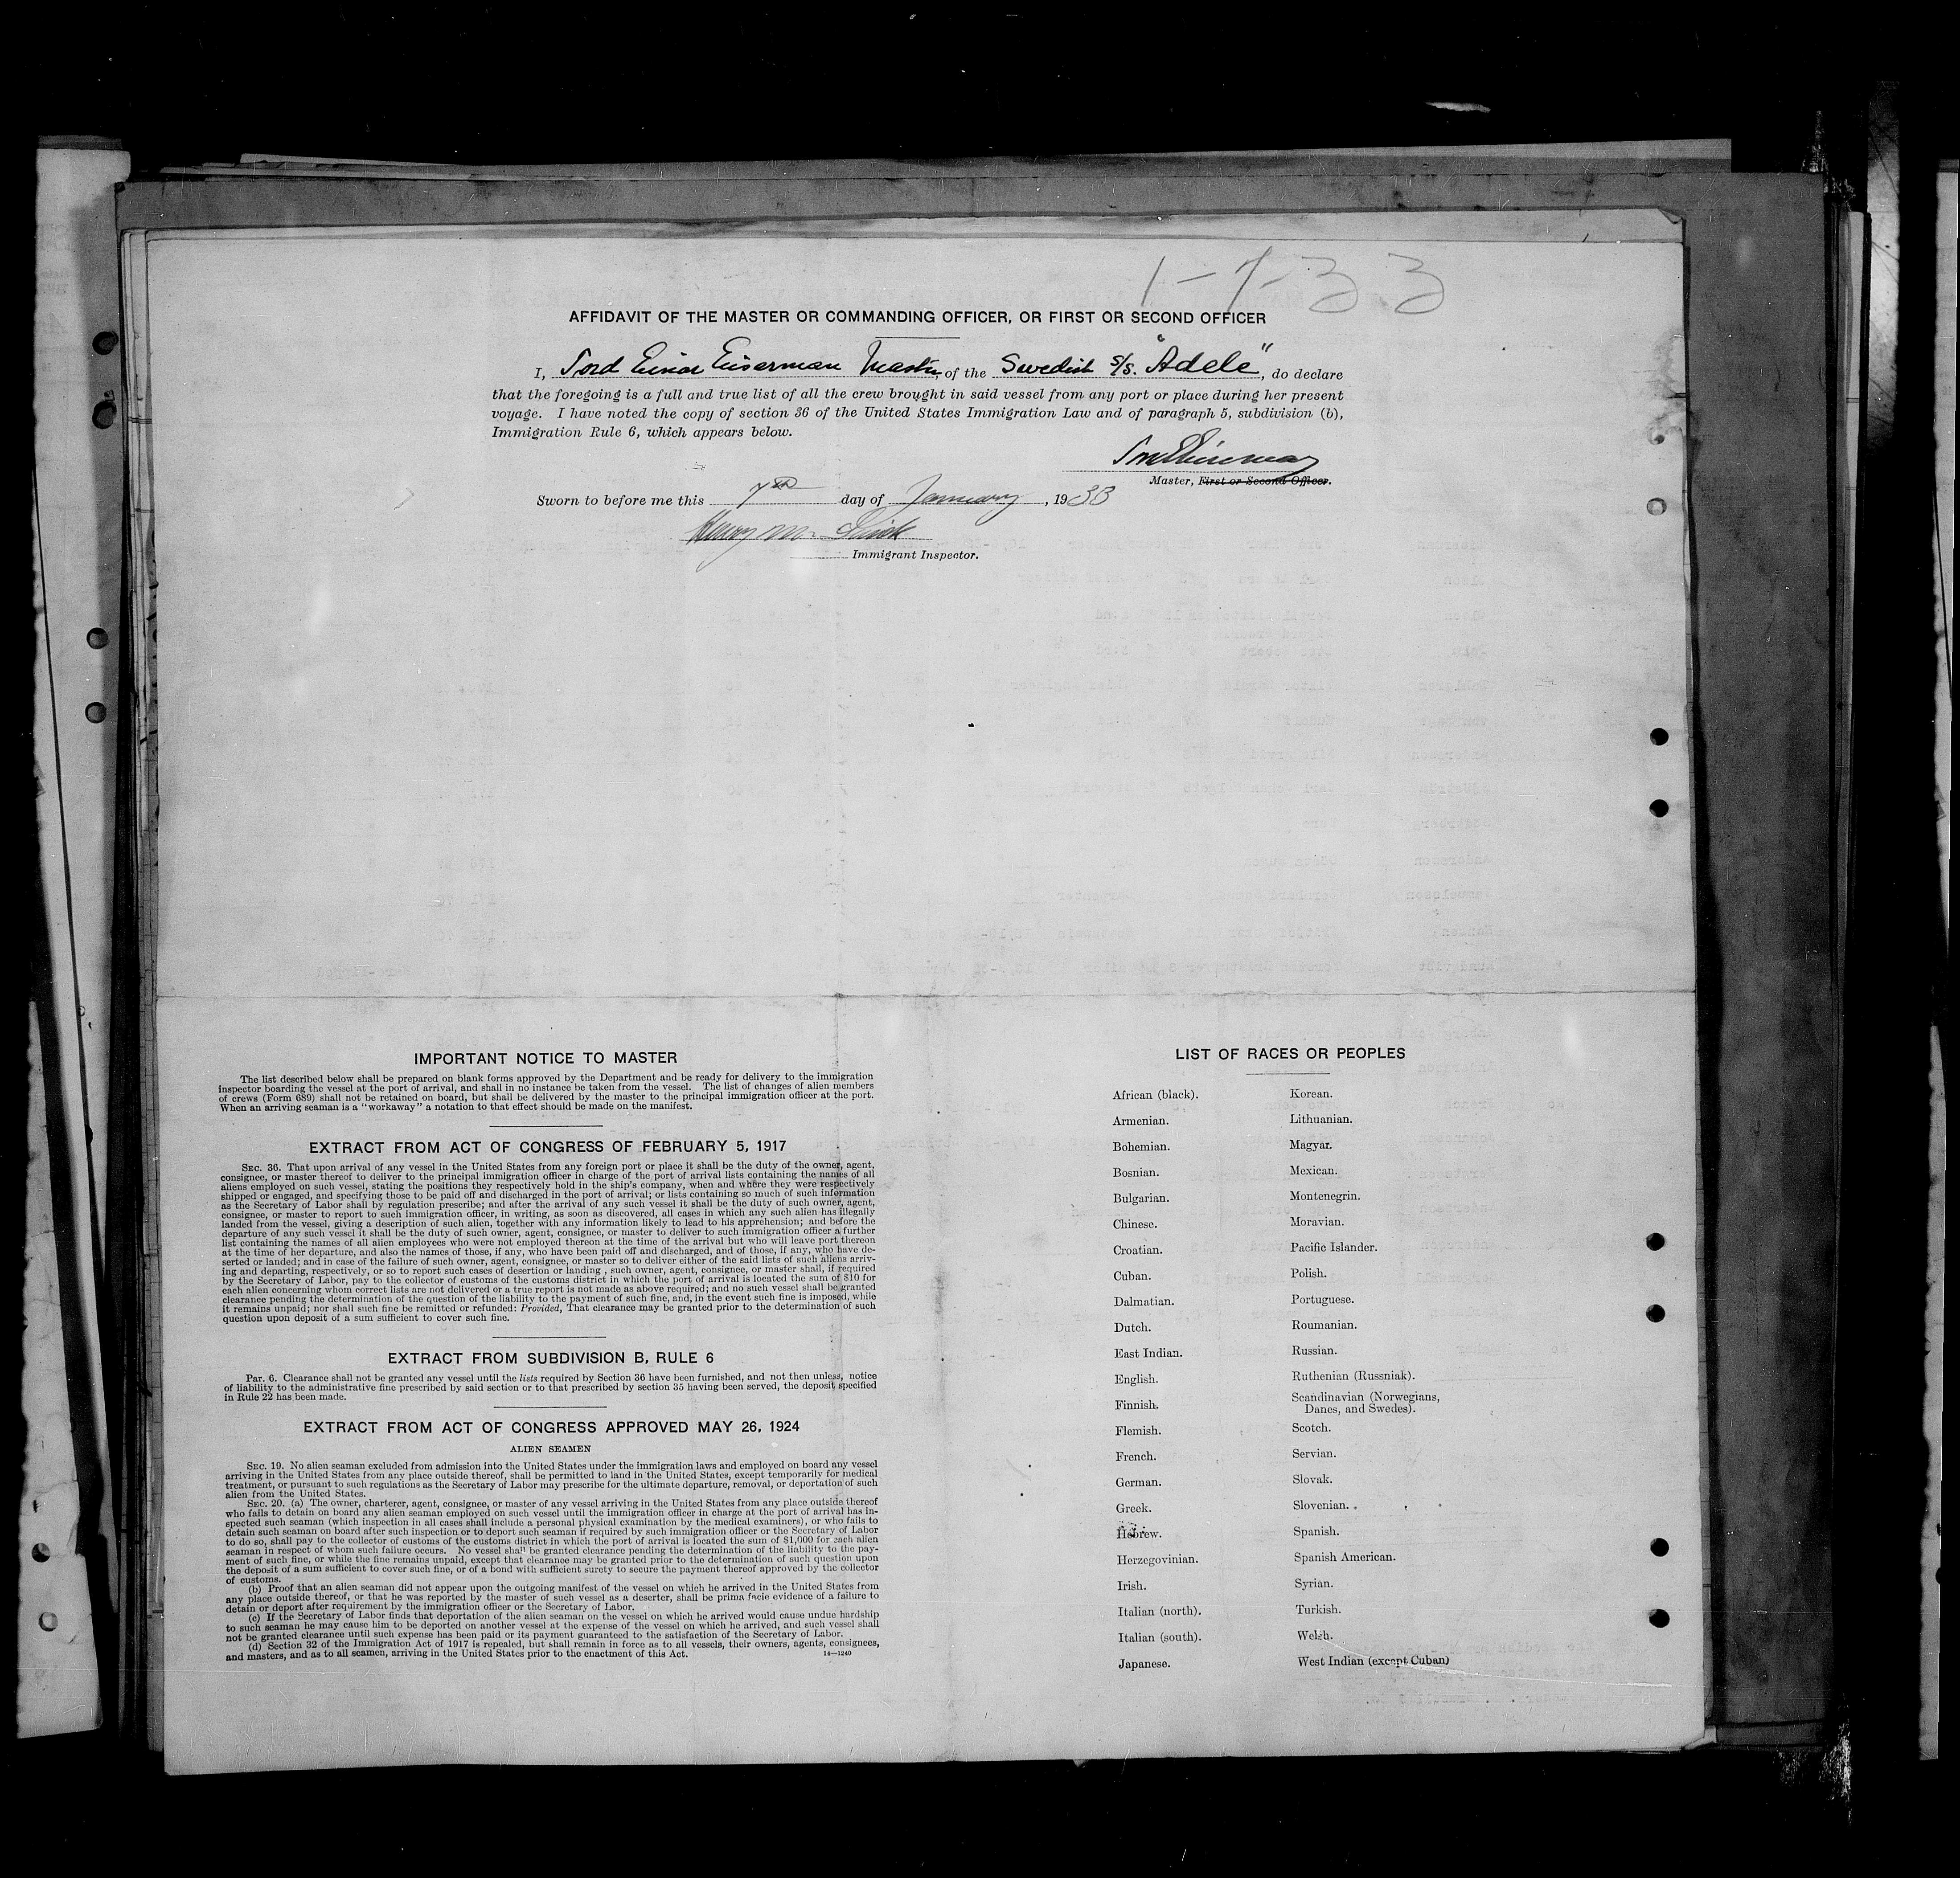 1-7-33
AFFIDAVIT OF THE MASTER OR COMMANDING OFFICER, OR FIRST OR SECOND OFFICER
I, Tord Einar Eiserman Master, of the Swedish S/S. "Adele", do declare
that the foregoing is a full and true list of all the crew brought in said vessel from any port or place during her present
voyage. I have noted the copy of section 36 of the United States Immigration Law and of paragraph 5, subdivision (b),
Immigration Rule 6, which appears below.
Master, First or Second Officer.
Sworn to before me this 7th day of January, 1933
Henry M.
Immigrant Inspector.
IMPORTANT NOTICE TO MASTER
The list described below shall be prepared on blank forms approved by the Department and be ready for delivery to the immigration
inspector boarding the vessel at the port of arrival, and shall in no instance be taken from the vessel. The list of changes of alien members
of crews (Form 689) shall not be retained on board, but shall be delivered by the master to the principal immigration officer at the port.
When an arriving seaman is a "workaway" a notation to that effect should be made on the manifest.
EXTRACT FROM ACT OF CONGRESS OF FEBRUARY 5, 1917
SEC. 36. That upon arrival of any vessel in the United States from any foreign port or place it shall be the duty of the owner, agent,
consignee, or master thereof to deliver to the principal immigration officer in charge of the port of arrival lists containing the names of all
aliens employed on such vessel, stating the positions they respectively hold in the ship's company, when and where they were respectively
shipped or engaged, and specifying those to be paid off and discharged in the port of arrival; or lists containing so much of such information
as the Secretary of Labor shall by regulation prescribe; and after the arrival of any such vessel it shall be the duty of such owner, agent,
consignee, or master to report to such immigration officer, in writing, as soon as discovered, all cases in which any such alien has illegally
landed from the vessel, giving a description of such alien, together with any information likely to lead to his apprehension; and before the
departure of any such vessel it shall be the duty of such owner, agent, consignee, or master to deliver to such immigration officer a further
list containing the names of all alien employees who were not employed thereon at the time of the arrival but who will leave port thereon
at the time of her departure, and also the names of those, if any, who have been paid off and discharged, and of those, if any, who have de-
serted or landed; and in case of the failure of such owner, agent, consignee, or master so to deliver either of the said lists of such aliens arriv-
ing and departing, respectively, or so to report such cases of desertion or landing, such owner, agent, consignee, or master shall, if required
by the Secretary of Labor, pay to the collector of customs of the customs district in which the port of arrival is located the sum of $10 for
each alien concerning whom correct lists are not delivered or a true report is not made as above required; and no such vessel shall be granted
clearance pending the determination of the question of the liability to the payment of such fine, and, in the event such fine is imposed, while
it remains unpaid; nor shall such fine be remitted or refunded: Provided, That clearance may be granted prior to the determination of such
question upon deposit of a sum sufficient to cover such fine.
EXTRACT FROM SUBDIVISION B, RULE 6
Par. 6. Clearance shall not be granted any vessel until the lists required by Section 36 have been furnished, and not then unless, notice
of liability to the administrative fine prescribed by said section or to that prescribed by section 35 having been served, the deposit specified
in Rule 22 has been made.
EXTRACT FROM ACT OF CONGRESS APPROVED MAY 26, 1924
ALIEN SEAMEN
SEC. 19. No alien seaman excluded from admission into the United States under the immigration laws and employed on board any vessel
arriving in the United States from any place outside thereof, shall be permitted to land in the United States, except temporarily for medical
treatment, or pursuant to such regulations as the Secretary of Labor may prescribe for the ultimate departure, removal, or deportation of such
alien from the United States.
SEC. 20. (a) The owner, charterer, agent, consignee, or master of any vessel arriving in the United States from any place outside thereof
who fails to detain on board any alien seaman employed on such vessel until the immigration officer in charge at the port of arrival has in-
spected such seaman (which inspection in all cases shall include a personal physical examination by the medical examiners), or who fails to
detain such seaman on board after such inspection or to deport such seaman if required by such immigration officer or the Secretary of Labor
to do so, shall pay to the collector of customs of the customs district in which the port of arrival is located the sum of $1,000 for each alien
seaman in respect of whom such failure occurs. No vessel shall be granted clearance pending the determination of the liability to the pay-
ment of such fine, or while the fine remains unpaid, except that clearance may be granted prior to the determination of such question upon
the deposit of a sum sufficient to cover such fine, or of a bond with sufficient surety to secure the payment thereof approved by the collector
of customs.
(b) Proof that an alien seaman did not appear upon the outgoing manifest of the vessel on which he arrived in the United States from
any place outside thereof, or that he was reported by the master of such vessel as a deserter, shall be prima facie evidence of a failure to
detain or deport after requirement by the immigration officer or the Secretary of Labor.
(c) If the Secretary of Labor finds that deportation of the alien seaman on the vessel on which he arrived would cause undue hardship
to such seaman he may cause him to be deported on another vessel at the expense of the vessel on which he arrived, and such vessel shall
not be granted clearance until such expense has been paid or its payment guaranteed to the satisfaction of the Secretary of Labor.
(d) Section 32 of the Immigration Act of 1917 is repealed, but shall remain in force as to all vessels, their owners, agents, consignees,
and masters, and as to all seamen, arriving in the United States prior to the enactment of this Act.
14—1240
LIST OF RACES OR PEOPLES
African (black).
Armenian.
Bohemian.
Bosnian.
Bulgarian.
Chinese.
Croatian.
Cuban.
Dalmatian.
Dutch.
East Indian.
English.
Finnish.
Flemish.
French.
German.
Greek.
Hebrew.
Herzegovinian.
Irish.
Italian (north).
Italian (south).
Japanese.
Korean.
Lithuanian.
Magyar.
Mexican.
Montenegrin.
Moravian.
Pacific Islander.
Polish.
Portuguese.
Roumanian.
Russian.
Ruthenian (Russniak).
Scandinavian (Norwegians,
Danes, and Swedes).
Scotch.
Servian.
Slovak.
Slovenian.
Spanish.
Spanish American.
Syrian.
Turkish.
Welsh.
West Indian (except Cuban)